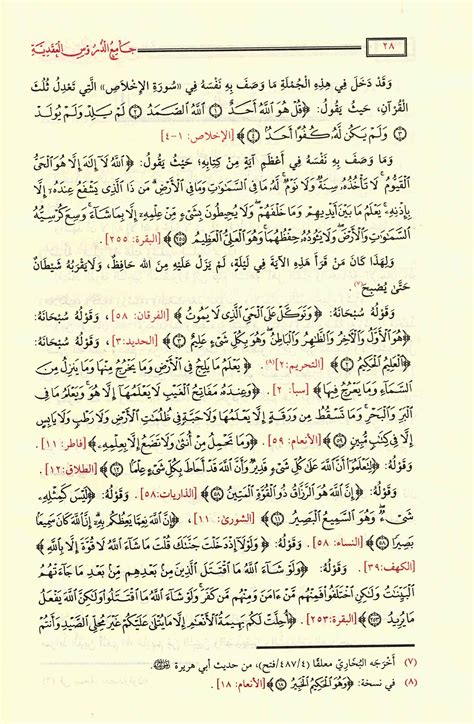 ٢٨ جامع الدروس العقدية
وَقَدْ دَخَلَ فِي هٰذِهِ الْجُمْلَةِ مَا وَصَفَ بِهِ نَفْسَهُ فِي «سُورَةِ الإِخْلَاصِ» الَّتِي تَعْدِلُ ثُلُثَ
الْقُرْآنِ، حَيْثُ يَقُولُ: ﴿قُلْ هُوَ اللَّهُ أَحَدٌ ۝١ اللَّهُ الصَّمَدُ ۝٢ لَمْ يَلِدْ وَلَمْ يُولَدْ
۝٣ وَلَمْ يَكُن لَّهُ كُفُوًا أَحَدٌ ۝٤﴾ [الإخلاص: ١-٤]
وَمَا وَصَفَ بِهِ نَفْسَهُ فِي أَعْظَمِ آيَةٍ مِنْ كِتَابِهِ، حَيْثُ يَقُولُ: ﴿اللَّهُ لَا إِلَهَ إِلَّا هُوَ الْحَيُّ
الْقَيُّومُ لَا تَأْخُذُهُ سِنَةٌ وَلَا نَوْمٌ لَّهُ مَا فِي السَّمَاوَاتِ وَمَا فِي الْأَرْضِ مَن ذَا الَّذِي يَشْفَعُ عِندَهُ إِلَّا
بِإِذْنِهِ يَعْلَمُ مَا بَيْنَ أَيْدِيهِمْ وَمَا خَلْفَهُمْ وَلَا يُحِيطُونَ بِشَيْءٍ مِّنْ عِلْمِهِ إِلَّا بِمَا شَاءَ وَسِعَ كُرْسِيُّهُ
السَّمَاوَاتِ وَالْأَرْضَ وَلَا يَئُودُهُ حِفْظُهُمَا وَهُوَ الْعَلِيُّ الْعَظِيمُ ۝٢٥٥﴾ [البقرة: ٢٥٥]
وَلِهَذَا كَانَ مَنْ قَرَأَ هَذِهِ الآيَةَ فِي لَيْلَةٍ، لَمْ يَزَلْ عَلَيْهِ مِنَ الله حَافِظٌ، وَلَا يَقْرَبُهُ شَيْطَانٌ
حَتَّىٰ يُصْبِحَ(٧)
وَقَوْلُهُ سُبْحَانَهُ: ﴿وَتَوَكَّلْ عَلَى الْحَيِّ الَّذِي لَا يَمُوتُ﴾ [الفرقان: ٥٨]، وَقَوْلُهُ سُبْحَانَهُ:
﴿هُوَ الْأَوَّلُ وَالْآخِرُ وَالظَّاهِرُ وَالْبَاطِنُ وَهُوَ بِكُلِّ شَيْءٍ عَلِيمٌ ۝٣﴾ [الحديد: ٣]، وَقَوْلُهُ سُبْحَانَهُ:
﴿الْعَلِيمُ الْحَكِيمُ ۝٢﴾ [التحريم: ٢](٨) ﴿يَعْلَمُ مَا يَلِجُ فِي الْأَرْضِ وَمَا يَخْرُجُ مِنْهَا وَمَا يَنزِلُ مِنَ
السَّمَاءِ وَمَا يَعْرُجُ فِيهَا﴾ [سبأ: ٢]. ﴿وَعِندَهُ مَفَاتِحُ الْغَيْبِ لَا يَعْلَمُهَا إِلَّا هُوَ وَيَعْلَمُ مَا فِي
الْبَرِّ وَالْبَحْرِ وَمَا تَسْقُطُ مِن وَرَقَةٍ إِلَّا يَعْلَمُهَا وَلَا حَبَّةٍ فِي ظُلُمَاتِ الْأَرْضِ وَلَا رَطْبٍ وَلَا يَابِسٍ
إِلَّا فِي كِتَابٍ مُّبِينٍ ۝٥٩﴾ [الأنعام: ٥٩]. ﴿وَمَا تَحْمِلُ مِنْ أُنثَى وَلَا تَضَعُ إِلَّا بِعِلْمِهِ﴾ [فاطر: ١١].
وَقَوْلُهُ: ﴿لِتَعْلَمُوا أَنَّ اللَّهَ عَلَى كُلِّ شَيْءٍ قَدِيرٌ وَأَنَّ اللَّهَ قَدْ أَحَاطَ بِكُلِّ شَيْءٍ عِلْمًا ۝١٢﴾ [الطلاق: ١٢]
وَقَوْلُهُ: ﴿إِنَّ اللَّهَ هُوَ الرَّزَّاقُ ذُو الْقُوَّةِ الْمَتِينُ ۝٥٨﴾ [الذاريات: ٥٨]. وَقَوْلُهُ: ﴿لَيْسَ كَمِثْلِهِ
شَيْءٌ وَهُوَ السَّمِيعُ الْبَصِيرُ ۝١١﴾ [الشورى: ١١]، ﴿إِنَّ اللَّهَ نِعِمَّا يَعِظُكُم بِهِ إِنَّ اللَّهَ كَانَ سَمِيعًا
بَصِيرًا ۝٥٨﴾ [النساء: ٥٨]. وَقَوْلُهُ: ﴿وَلَوْلَا إِذْ دَخَلْتَ جَنَّتَكَ قُلْتَ مَا شَاءَ اللَّهُ لَا قُوَّةَ إِلَّا بِاللَّهِ﴾
[الكهف: ٣٩]. وَقَوْلُهُ: ﴿وَلَوْ شَاءَ اللَّهُ مَا اقْتَتَلَ الَّذِينَ مِن بَعْدِهِم مِّن بَعْدِ مَا جَاءَتْهُمُ
الْبَيِّنَاتُ وَلَكِنِ اخْتَلَفُوا فَمِنْهُم مَّنْ آمَنَ وَمِنْهُم مَّن كَفَرَ وَلَوْ شَاءَ اللَّهُ مَا اقْتَتَلُوا وَلَكِنَّ اللَّهَ يَفْعَلُ
مَا يُرِيدُ ۝٢٥٣﴾ [البقرة: ٢٥٣] ﴿أُحِلَّتْ لَكُم بَهِيمَةُ الْأَنْعَامِ إِلَّا مَا يُتْلَى عَلَيْكُمْ غَيْرَ مُحِلِّي الصَّيْدِ وَأَنتُمْ
(٧) أَخْرَجَهُ البُخَارِيُّ معلقًا (٤٨٧/٤/فتح)، من حديث أبي هريرة رضي الله عنه
(٨) في نسخة: ﴿وَهُوَ الْحَكِيمُ الْخَبِيرُ ۝١٨﴾ [الأنعام: ١٨].